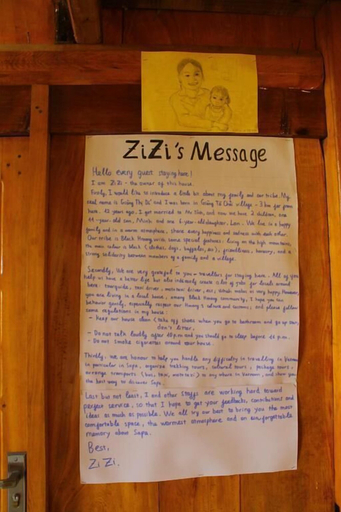 ZiZi's Message
Hello every guest staying here!
I am ZiZi - the owner of this house.
Firstly, I would like to introduce a little bit about my family and our tribe. My
real name is Giàng Thị Dế and I was born in Giàng Tả Chải village - 3 km far from
here. years ago, I got married to Mr. and now we have 2 children, one
-year-old son, and one 6-year-old daughter, . We live in a happy
family and in a warm atmosphere, share every happiness and sadness with each other.
Our tribe is Black Hmong with some special features: living on the high mountains,
the main colour is black (clothes, dogs, buffaloes, ...), friendliness, bravery, and a
strong solidarity between members of a family and a village.
Secondly, We are very grateful to you - travellers for staying here. All of you
help us have a better life and also indirectly create a lot of jobs for locals around
here: tourguide, taxi driver, motorbike driver, etc, which makes us very happy. However,
you are living in a local house, among Black Hmong community, I hope you can
behavior gently, especially respect our Hmong's culture and customs, and please follow
some regulations in my house:
- Keep our house clean (take off shoes when you go to bathroom and go up stairs,
don't litter.
- Do not talk loudly after 10 p.m and you should go to sleep before 11 p.m.
- Do not smoke cigarettes around our house.
Thirdly, We are honour to help you handle any difficulty in travelling in Vietnam
in particular in Sapa, organise trekking tours, cultural tours, package tours,
arrange transports (bus, taxi, motorbike) to any where in Vietnam, and show you
the best way to discover Sapa.
Last but not least, I and other staffs are working hard toward
perfect service, so that I hope to get your feedback, contributions and
ideas as much as possible. We all try our best to bring you the most
comfortable space, the warmest atmosphere and an unforgettable
memory about Sapa.
Best,
ZiZi.